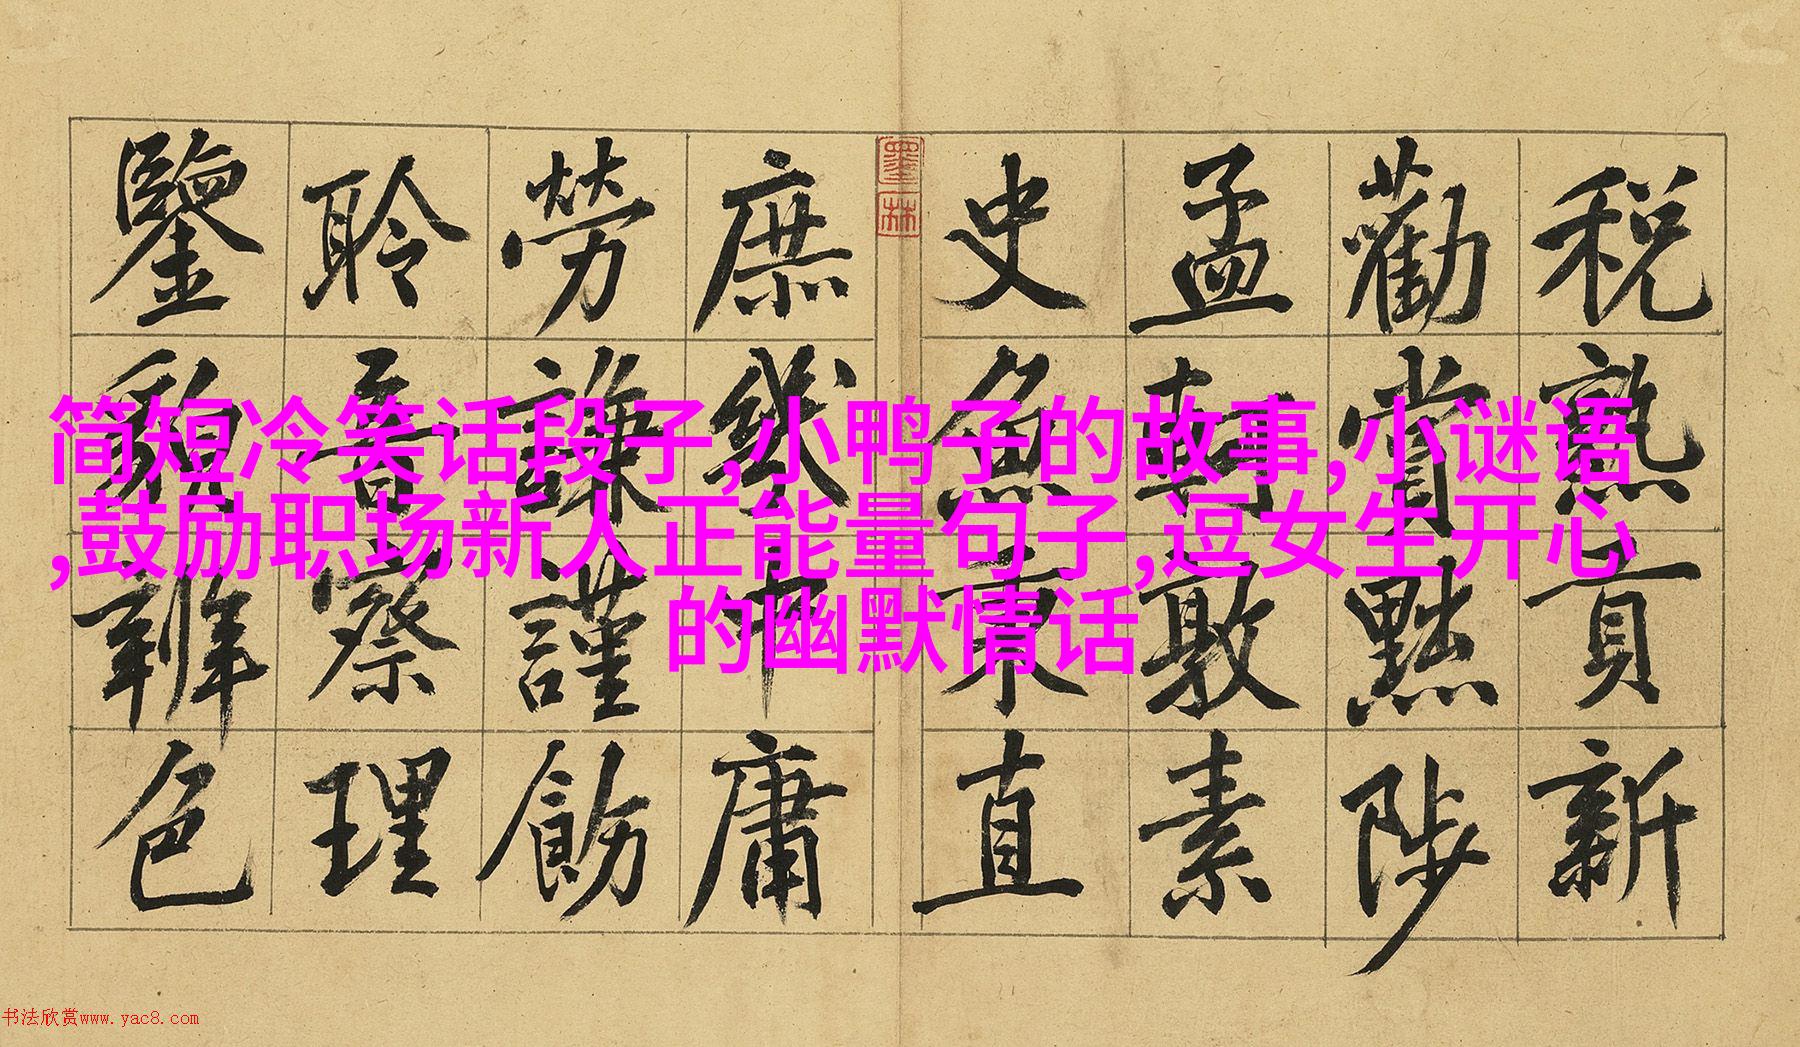 税熟貢新
勸賞黜陟
孟軻敦素
史魚秉直
墨林
庶幾中庸
勞謙謹飭
聆音察理
鑒貌辨色
简短冷笑话段子,小鸭子的故事,小谜语
,鼓励职场新人正能量句子,逗女生开心
的幽默情话
书法欣赏www.yac8.com